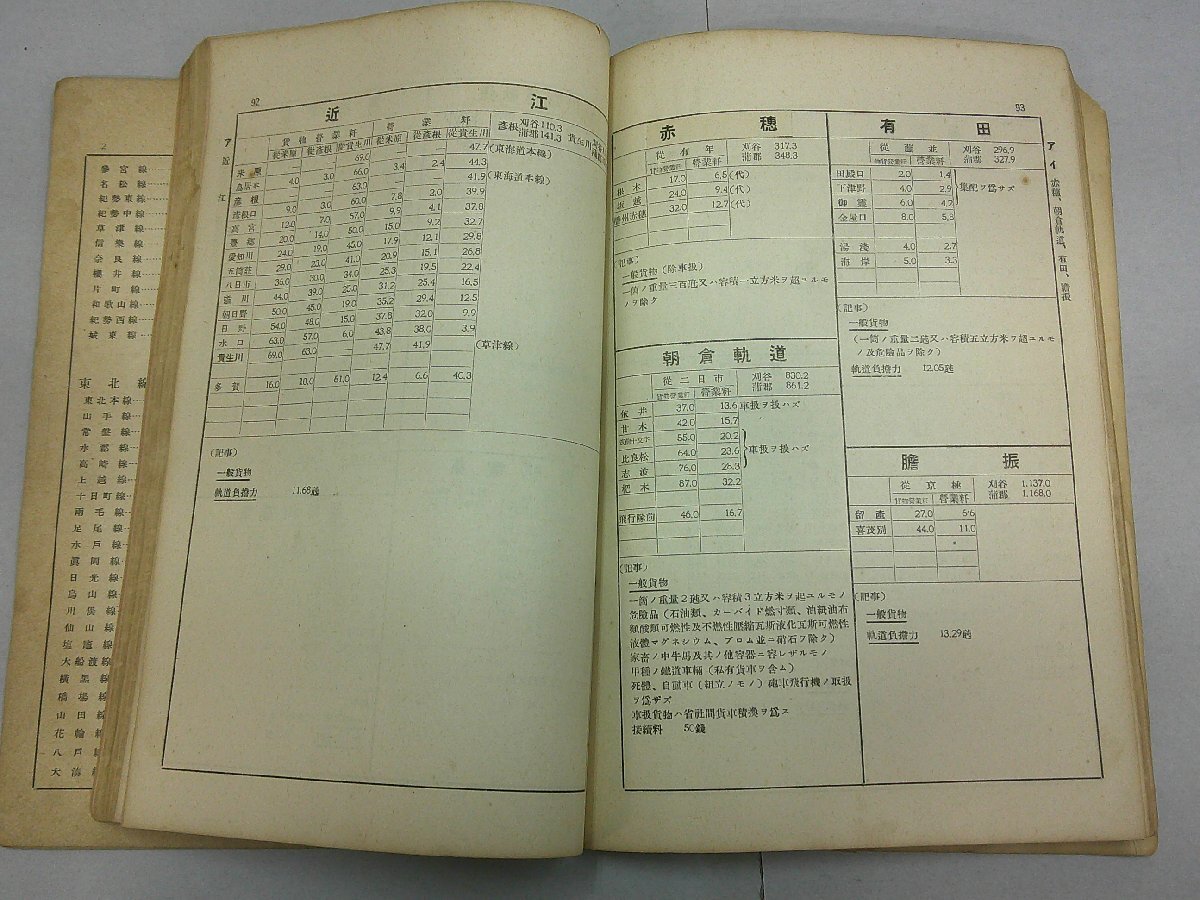 2
參宮線
名松線
紀勢東線
紀勢中線
草津線
信樂線
奈良線
櫻井線
片町線
和歌山線
紀勢西線
城東線
東北線
東北本線
山手線
常盤線
水郡線
高崎線
上越線
十日町線
兩毛線
足尾線
水戸線
眞岡線
日光線
烏山線
川俣線
仙山線
塩竈線
大船渡線
橫黑線
橋場線
山田線
花輪線
八戸線
大湊
92
近江
貨物營業粁 營業粁
從米原 從彥根 從貴生川 從米原 從彥根 從貴生川
彥根 刈谷110.3 蒲郡141.3
69.0 47.7 (東海道本線)
米原 3.0 66.0 3.4 2.4 44.3
鳥居本 4.0 63.0 41.9 (東海道本線)
彥根 3.0 60.0 7.8 2.0 39.9
彥根口 9.0 7.0 57.0 9.9 4.1 37.8
高宮 12.0 14.0 50.0 15.0 9.2 32.7
豐鄕 20.0 19.0 45.0 17.9 12.1 29.8
愛知川 24.0 23.0 41.0 20.9 15.1 26.8
五箇莊 29.0 30.0 34.0 25.3 19.5 22.4
八日市 36.0 39.0 25.0 31.2 25.4 16.5
櫻川 44.0 45.0 19.0 35.2 29.4 12.5
朝日野 50.0 48.0 15.0 37.8 32.0 9.9
日野 54.0 57.0 6.0 43.8 38.0 3.9
水口 63.0 63.0 47.7 41.9 (草津線)
貴生川 69.0
多賀 16.0 10.0 61.0 12.4 6.6 40.3
(記事)
一般貨物
軌道負擔力 11.68瓲
93
赤穗
從有年 刈谷 317.3
貨物營業粁 營業粁 蒲郡 348.3
根木 17.0 6.5 (代)
坂越 24.0 9.4 (代)
播州赤穗 32.0 12.7 (代)
(記事)
一般貨物(除車扱)
一箇ノ重量二百瓩又ハ容積一立方米ヲ超ユルモ
ノヲ除ク
朝倉軌道
從二日市 刈谷 830.2
貨物營業粁 營業粁 蒲郡 861.2
依井 37.0 13.6 車扱ヲ扱ハズ
甘木 42.0 15.7
55.0 20.2
比良松 64.0 23.6 車扱ヲ扱ハズ
志波 76.0 28.3
杷木 87.0 32.2
飛行隊前 46.0 16.7
(記事)
一般貨物
一箇ノ重量2瓲又ハ容積3立方米ヲ超ユルモノ
危險品(石油類、カーバイド燐寸類、油紙油布
類酸類可燃性及不燃性壓縮瓦斯液化瓦斯可燃性
液體マグネシウム、ブロム並ニ硝石ヲ除ク)
家畜ノ中牛馬及其ノ他容器ニ容レザルモノ
甲種ノ鐵道車輛(私有貨車ヲ含ム)
死體、自動車(組立ノモノ)砲車飛行機ノ取扱
ヲ爲サズ
車扱貨物ハ省社間貨車積換ヲ爲ス
接續料 50錢
有田
從藤並 刈谷 296.9
貨物營業粁 營業粁 蒲郡 327.9
田殿口 2.0 1.4 集配ヲ爲サズ
下津野 4.0 2.9
御靈 6.0 4.2
金屋口 8.0 5.3
湯淺 4.0 2.7
海岸 5.0 3.3
(記事)
一般貨物
(一箇ノ重量二瓲又ハ容積五立方米ヲ超ユルモ
ノ及危險品ヲ除ク)
軌道負擔力 12.05瓲
膽振
從京極 刈谷 1,137.0
貨物營業粁 營業粁 蒲郡 1,168.0
留產 27.0 5.6
喜茂別 44.0 11.0
(記事)
一般貨物
軌道負擔力 13.29瓲
アイ 赤穗、朝倉軌道、有田、膽振